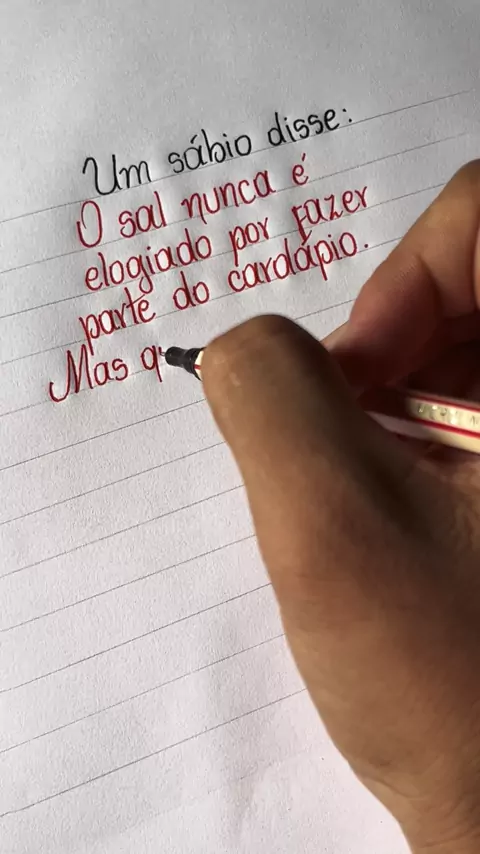 Um sábio disse:
O sal nunca é
elogiado por fazer
parte do cardápio.
Mas q